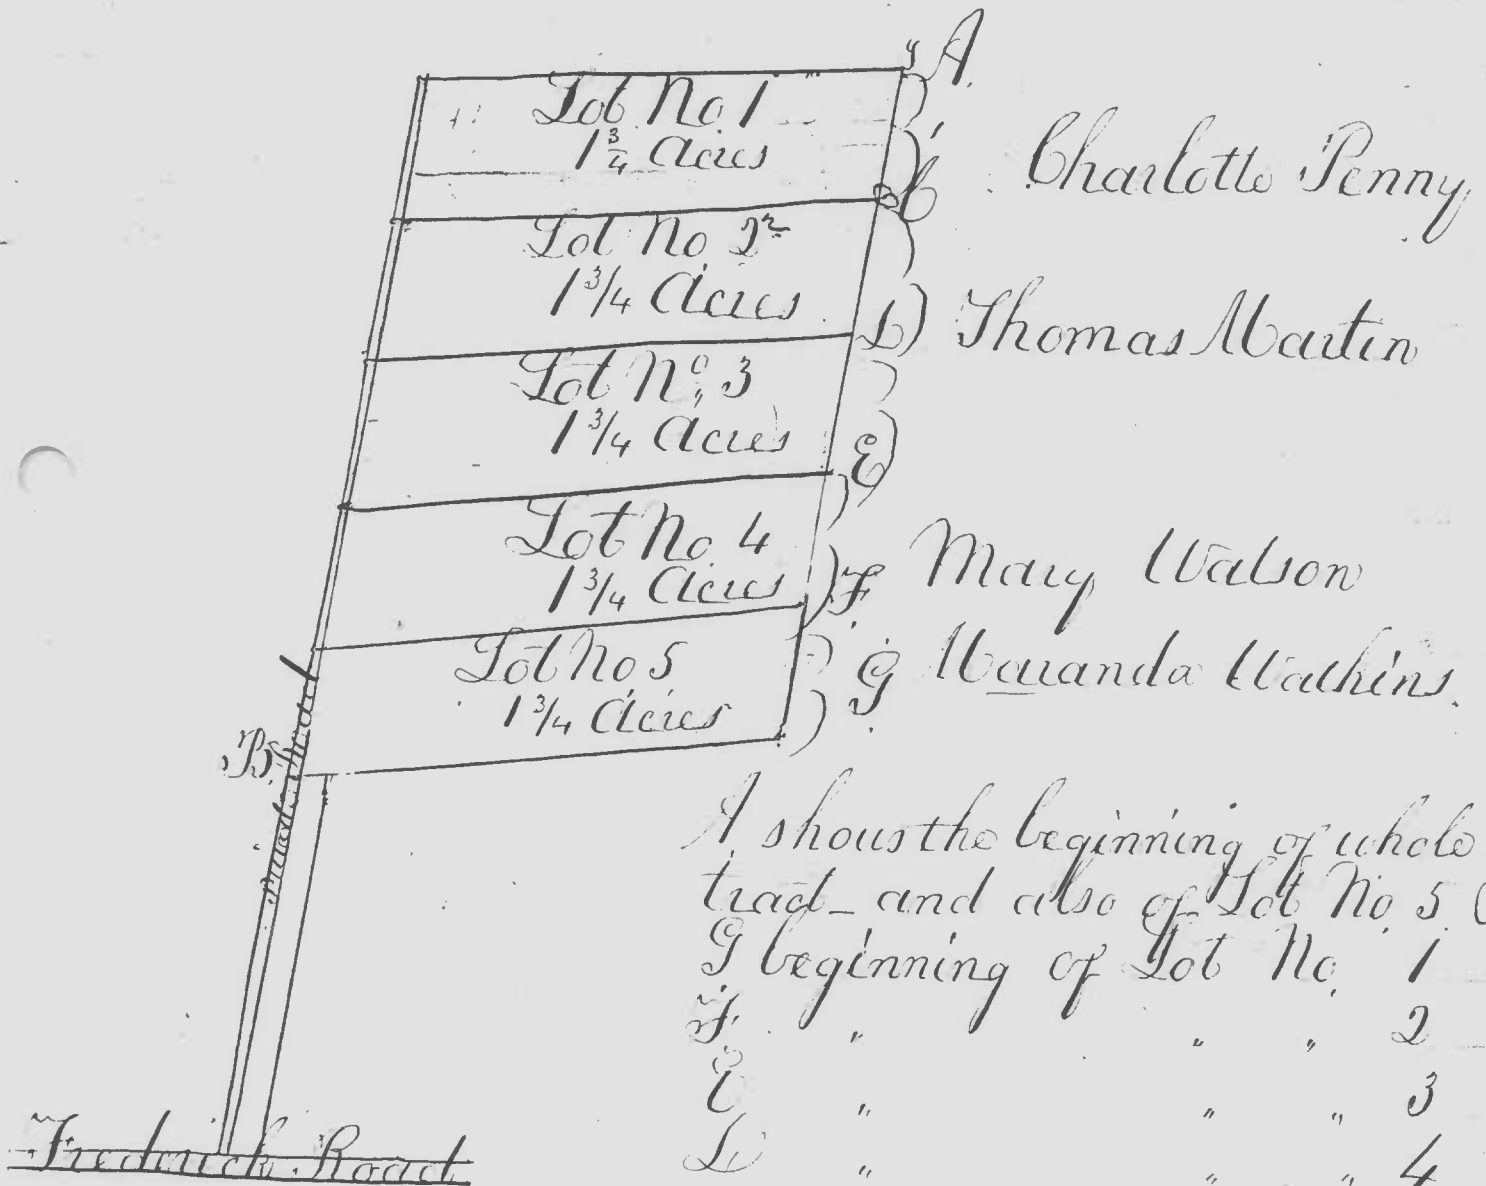 A.
Lot No 1
1 3/4 Acres
C
Charlotte Penny
Lot No. 2
1 3/4 Acres
D
Thomas Martin
Lot No. 3
1 3/4 Acres
E
Lot No 4
1 3/4 Acres
F.
Mary Watson
Lot No 5
1 3/4 Acres
G
Maranda Watkins.
B.
Road
A shows the beginning of whole
tract_ and also of Lot No. 5
G beginning of Lot No. 1
F. " " " 2
E " " " 3
D " " " 4
Frederick Road